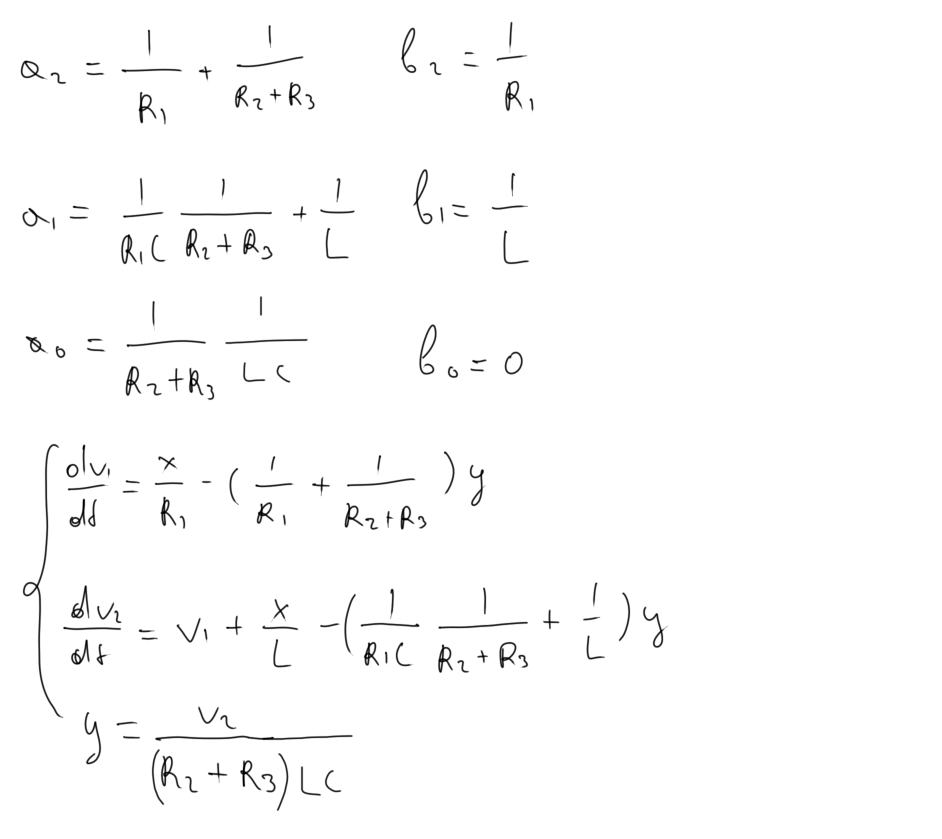 a₂ = 1/R₁ + 1/(R₂+R₃)   b₂ = 1/R₁
a₁ = 1/(R₁C) 1/(R₂+R₃) + 1/L   b₁ = 1/L
a₀ = 1/(R₂+R₃) 1/(LC)   b₀ = 0
{ dv₁/dt = x/R₁ - (1/R₁ + 1/(R₂+R₃)) y
dv₂/dt = v₁ + x/L - (1/(R₁C) 1/(R₂+R₃) + 1/L) y
y = v₂/((R₂+R₃)LC)